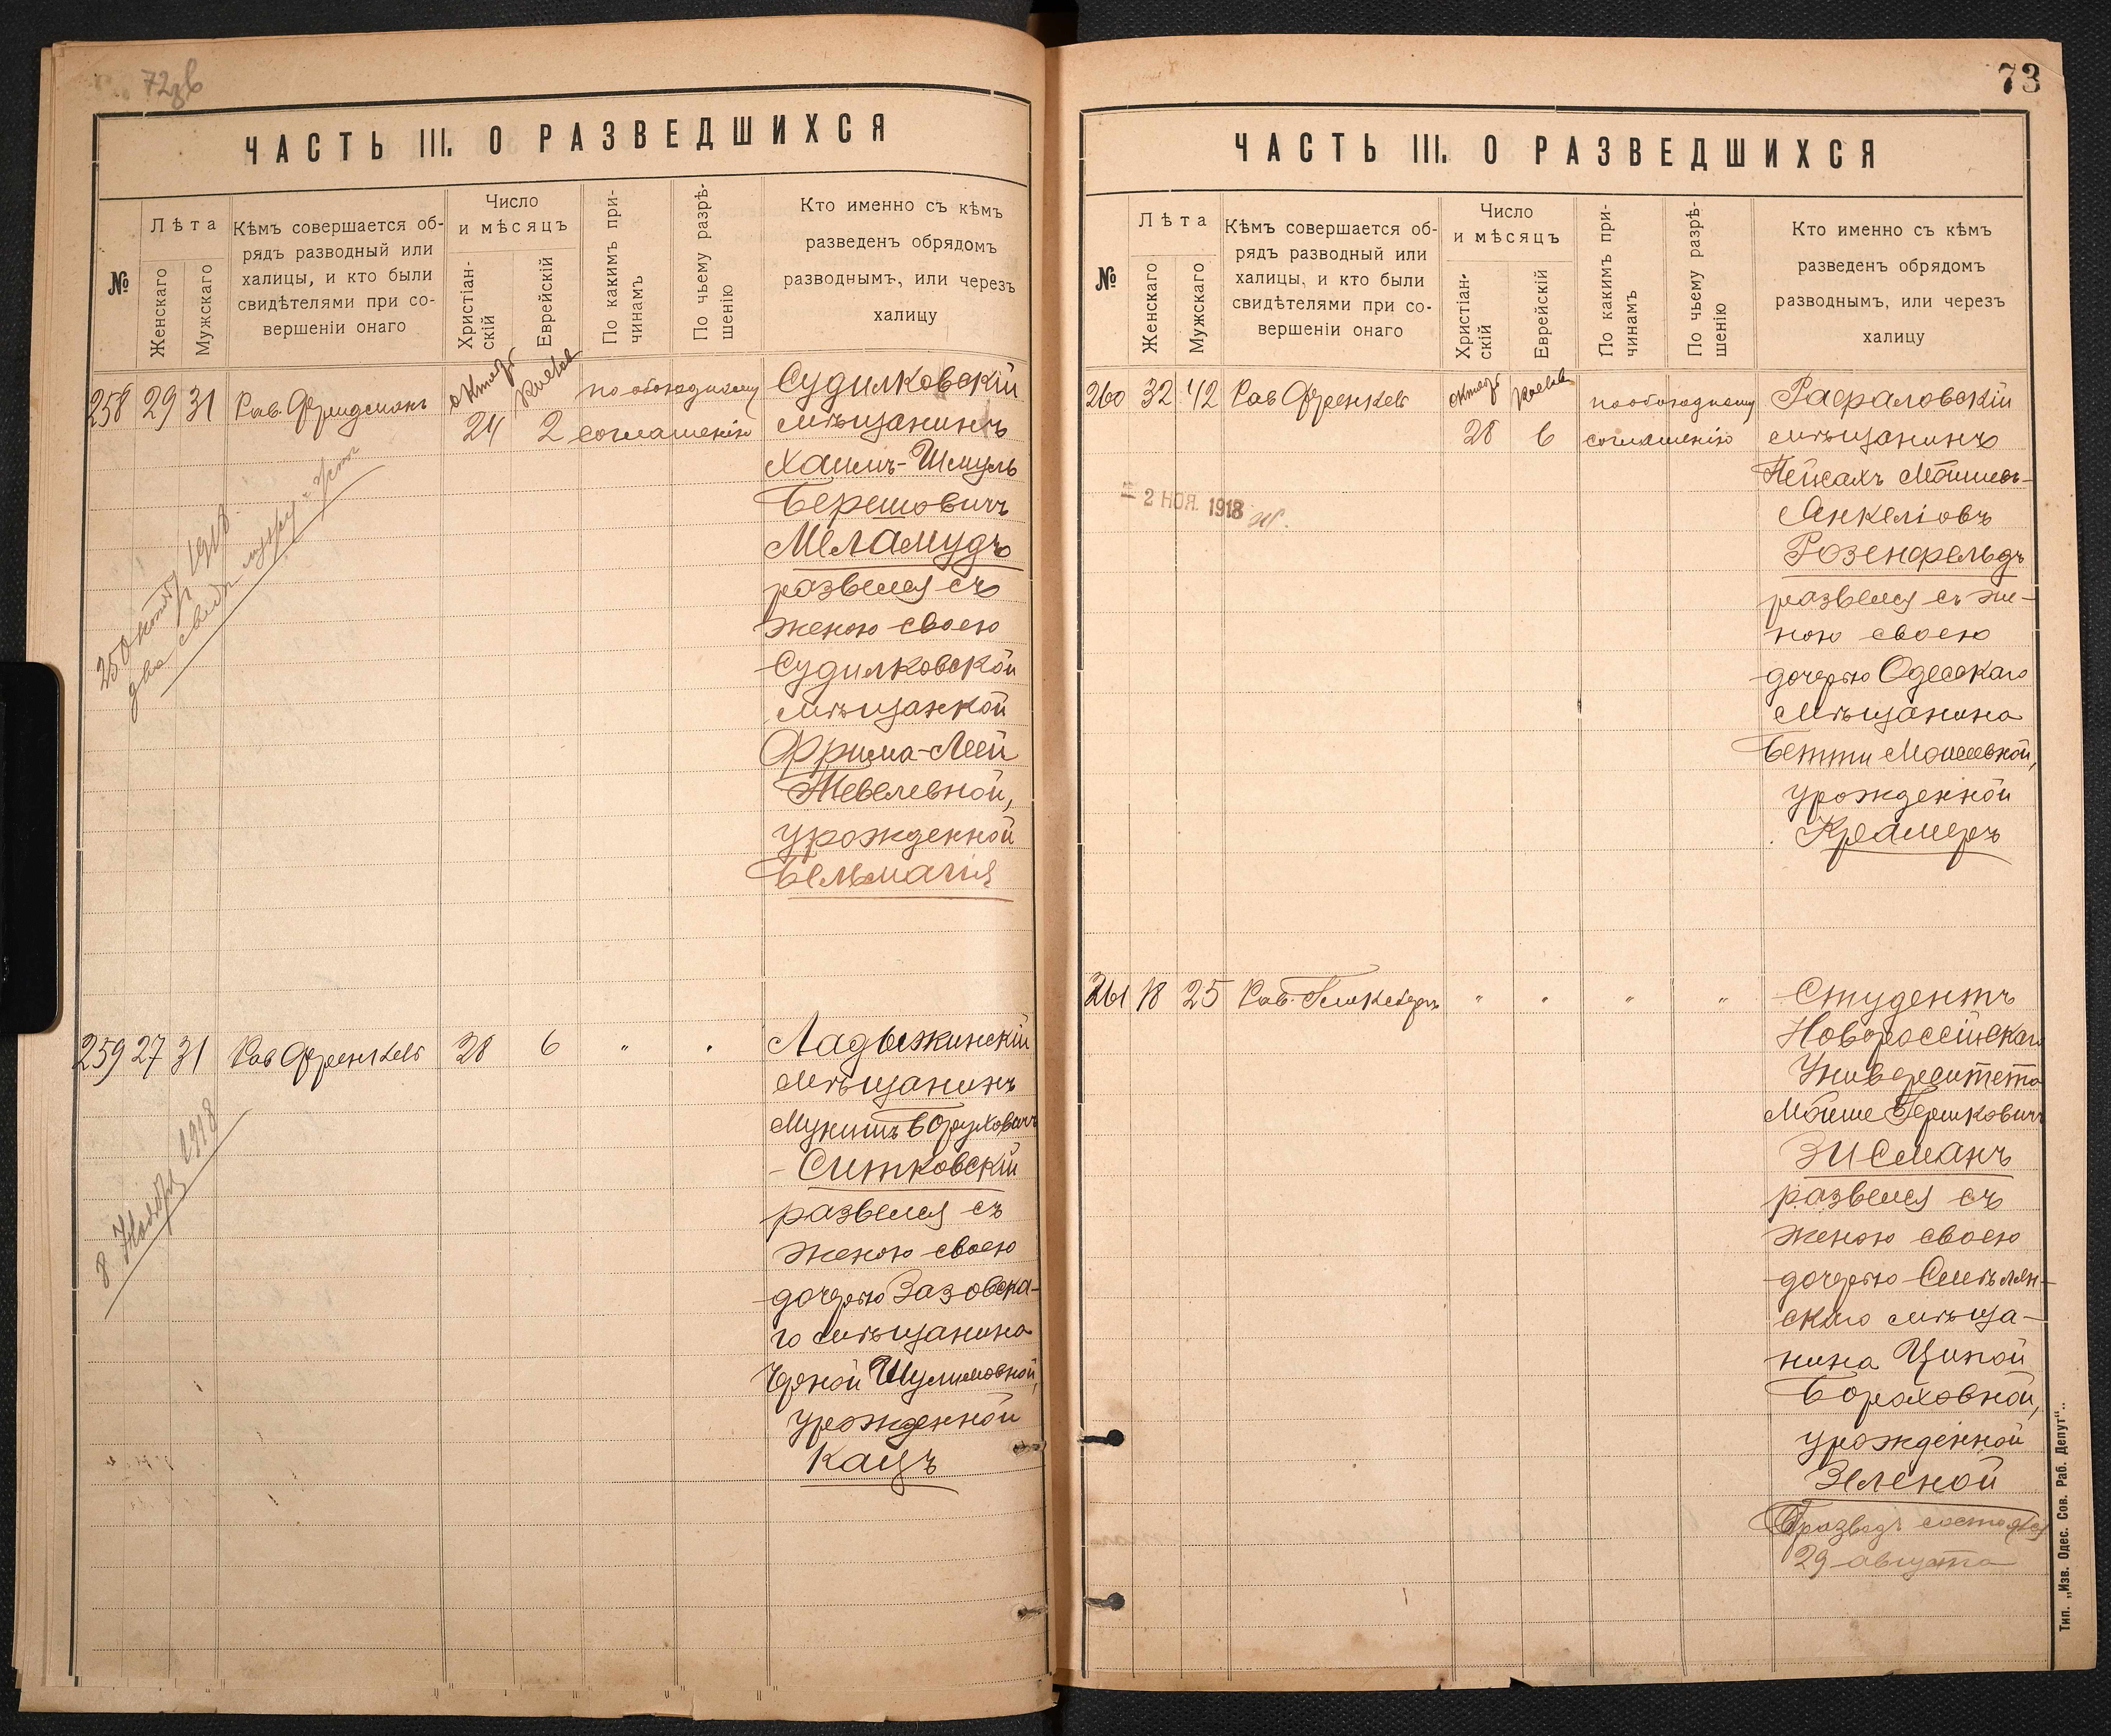 72зв
ЧАСТЬ III. О РАЗВЕДШИХСЯ
№
Лѣта
Женскаго
Мужскаго
Кѣмъ совершается об-
рядъ разводный или
халицы, и кто были
свидѣтелями при со-
вершеніи онаго
Число
и мѣсяцъ
Христіан-
скій
Еврейскій
По какимъ при-
чинамъ
По чьему разрѣ-
шенію
Кто именно съ кѣмъ
разведенъ обрядомъ
разводнымъ, или черезъ
халицу
258 29 31 Рав. Фридманъ
октяб 24
Кислев 2
по обоюдному
соглашенію
Судилковскій
мѣщанинъ
Хаимъ-Шмуль
Берешовичъ
Меламудъ
развелся съ
женою своею
Судилковской
мѣщанкой
Фрима-Леей
Тевелевной,
урожденной
Бельмагія
25 Октяб 1918
два свид
259 27 31 Рав Френкель 28 6 " "
Ладыжинскій
мѣщанинъ
Мунишъ Боруховичъ
Ситковскій
развелся съ
женою своею
дочерью Зазовска-
го мѣщанина
Шулимовной,
урожденной
Кацъ
8 Ноября 1918
73
ЧАСТЬ III. О РАЗВЕДШИХСЯ
№
Лѣта
Женскаго
Мужскаго
Кѣмъ совершается об-
рядъ разводный или
халицы, и кто были
свидѣтелями при со-
вершеніи онаго
Число
и мѣсяцъ
Христіан-
скій
Еврейскій
По какимъ при-
чинамъ
По чьему разрѣ-
шенію
Кто именно съ кѣмъ
разведенъ обрядомъ
разводнымъ, или черезъ
халицу
260 32 42 Рав Френкель
октяб 28
Кислев 6
по обоюдному
соглашенію
Рафаловскій
мѣщанинъ
Пейсахъ Мошшев-
Анкеліовъ
Розенфельдъ
развелся съ же-
ною своею
дочерью Одесскаго
мѣщанина
Бетти Моисеевной,
урожденной
Крамеръ
- 2 НОЯ. 1918
261 18 25 Рав. Гликсбергъ " " " "
Студентъ
Новороссійскаго
Университета
Мойше Гершковичъ
Зисманъ
развелся съ
женою своею
дочерью Смѣлян-
скаго мѣща-
нина Ципой
Бораховной,
урожденной
Зеленой
Разводъ состоялся
29 августа
Тип. „Изв. Одес. Сов. Раб. Депут“..